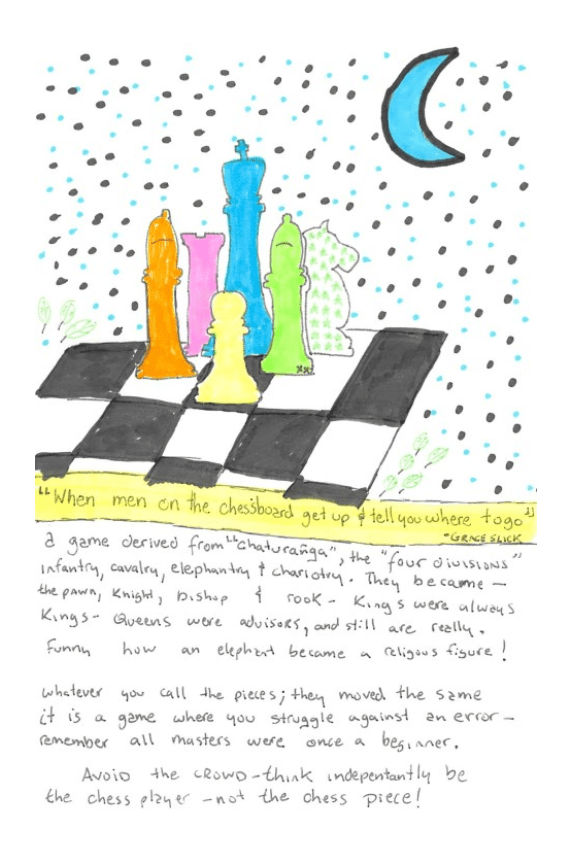 "When men on the chessboard get up & tell you where to go"
- GRACE SLICK
a game derived from "Chaturanga", the "four divisions"
infantry, cavalry, elephantry & chariotry. They became –
the pawn, Knight, Bishop & rook – Kings were always
Kings – Queens were advisors, and still are really.
Funny how an elephant became a religous figure!
whatever you call the pieces; they moved the same
it is a game where you struggle against an error –
remember all masters were once a beginner.
Avoid the CROWD – think indepentantly be
the chess player – not the chess piece!